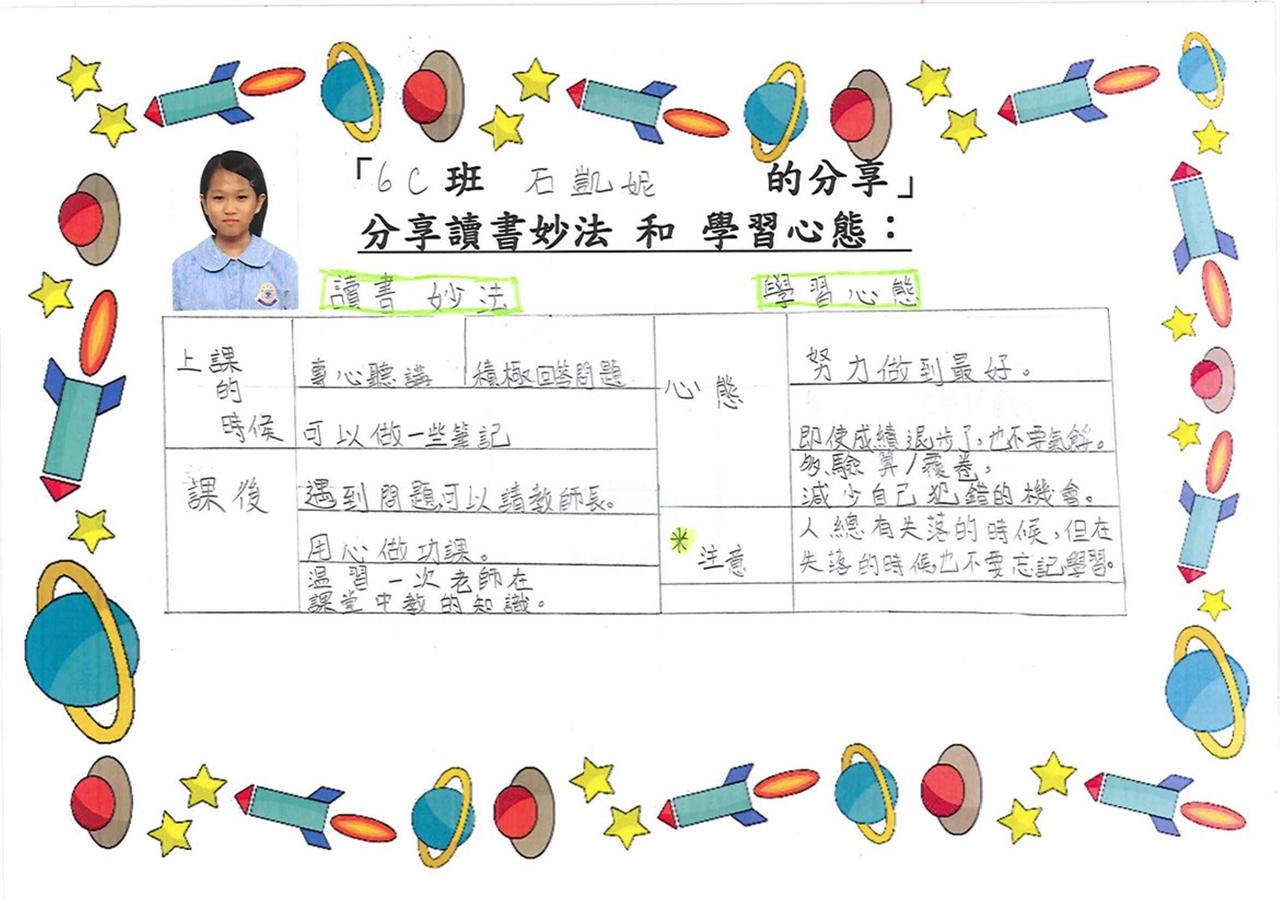 「6C班 石凱妮 的分享」
分享讀書妙法 和 學習心態：
讀書妙法
學習心態
上課
的
時候
專心聽講
積極回答問題
可以做一些筆記
課後
遇到問題,可以請教師長。
用心做功課。
溫習一次老師在
課堂中教的知識。
心態
努力做到最好。
即使成績退步了,也不要氣餒。
多驗算/覆卷,
減少自己犯錯的機會。
* 注意
人總有失落的時候,但在
失落的時候,也不要忘記學習。